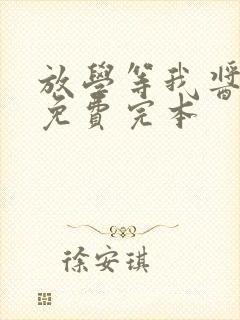 放學等我醬
免費完本
徐安琪